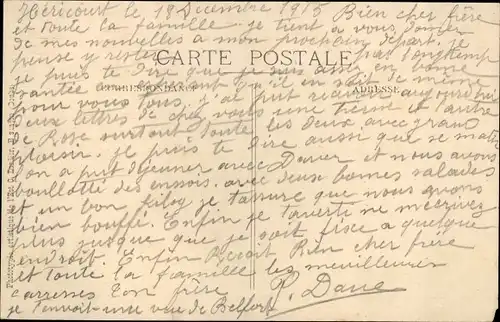 Héricourt le 18 Decembre 1915 Bien cher frère
et toute la famille je tient a vous donner
de mes nouvelles a mon prochain départ. je
pense y rester pas longtemp
CARTE POSTALE
je puis te dire que je suis en bonne
CORRESPONDANCE
ADRESSE
santée et qu'il en soit de même
pour vous tous, j'ai put recevoir aujourd'hui
deux lettres de chez vous une tienne et l'autre
de Rose surtout toute les deux avec grand
plaisir. je puis te dire aussi que ce matin
on a put déjeuner avec Daver et nous avons
boullotté des avec deux bonnes salades
et un bon filog je t'assure que nous avons
bien bouffé. Enfin je t'averti ne m'écrivez
plus jusque que je soit fixe a quelque
endroit. Enfin Reçoit Bien cher frère
et toute la famille les meuilleures
caresses Ton frère P. Dave
je t'envoit une vue de Belfort